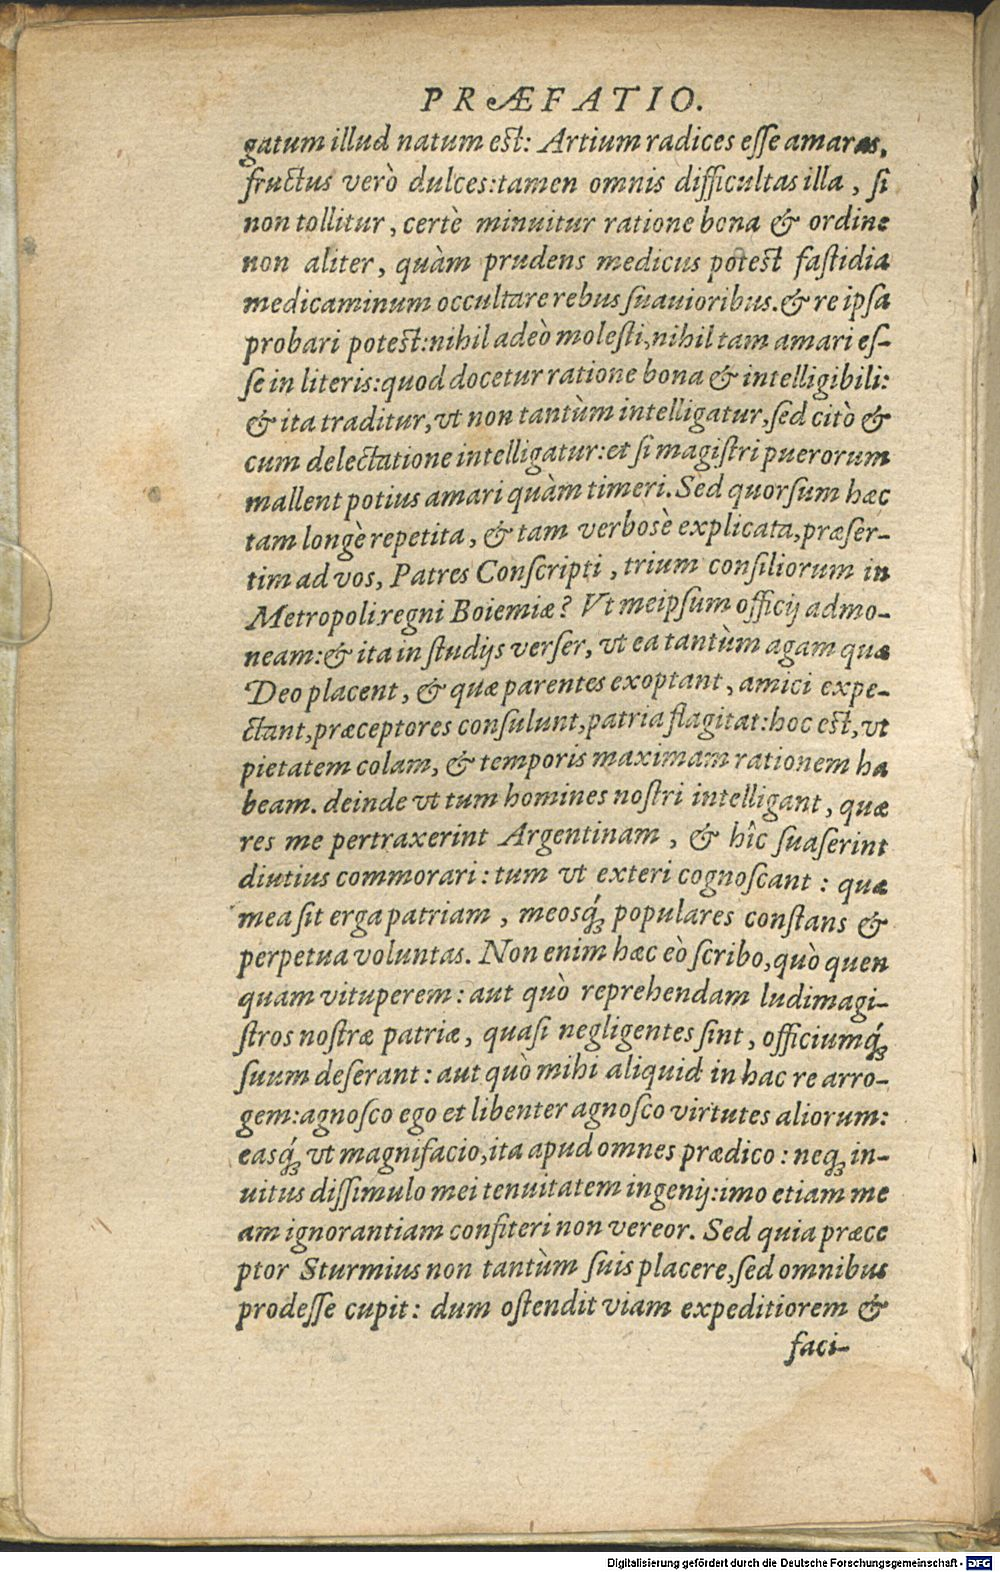 PRÆFATIO.
gatum illud natum est: Artium radices esse amaras,
fructus verò dulces: tamen omnis difficultas illa, si
non tollitur, certè minuitur ratione bona & ordine
non aliter, quàm prudens medicus potest fastidia
medicaminum occultare rebus suauioribus. & re ipsa
probari potest: nihil adeò molesti, nihil tam amari es-
se in literis: quod docetur ratione bona & intelligibili:
& ita traditur, vt non tantùm intelligatur, sed citò &
cum delectatione intelligatur: et si magistri puerorum
mallent potius amari quàm timeri. Sed quorsum hæc
tam longè repetita, & tam verbosè explicata, præser-
tim ad vos, Patres Conscripti, trium consiliorum in
Metropoli regni Boiemiæ? Vt meipsum officij admo-
neam: & ita in studijs verser, vt ea tantùm agam quæ
Deo placent, & quæ parentes exoptant, amici expe-
ctant, præceptores consulunt, patria flagitat: hoc est, vt
pietatem colam, & temporis maximam rationem ha
beam. deinde vt tum homines nostri intelligant, quæ
res me pertraxerint Argentinam, & hîc suaserint
diutius commorari: tum vt exteri cognoscant: quæ
mea sit erga patriam, meosq́; populares constans &
perpetua voluntas. Non enim hæc eò scribo, quò quen
quam vituperem: aut quò reprehendam ludimagi-
stros nostræ patriæ, quasi negligentes sint, officiumq́;
suum deserant: aut quò mihi aliquid in hac re arro-
gem: agnosco ego et libenter agnosco virtutes aliorum:
easq́; vt magnifacio, ita apud omnes prædico: neq; in-
uitus dissimulo mei tenuitatem ingenij: imo etiam me
am ignorantiam confiteri non vereor. Sed quia præce
ptor Sturmius non tantùm suis placere, sed omnibus
prodesse cupit: dum ostendit viam expeditiorem &
faci-
Digitalisierung gefördert durch die Deutsche Forschungsgemeinschaft - DFG